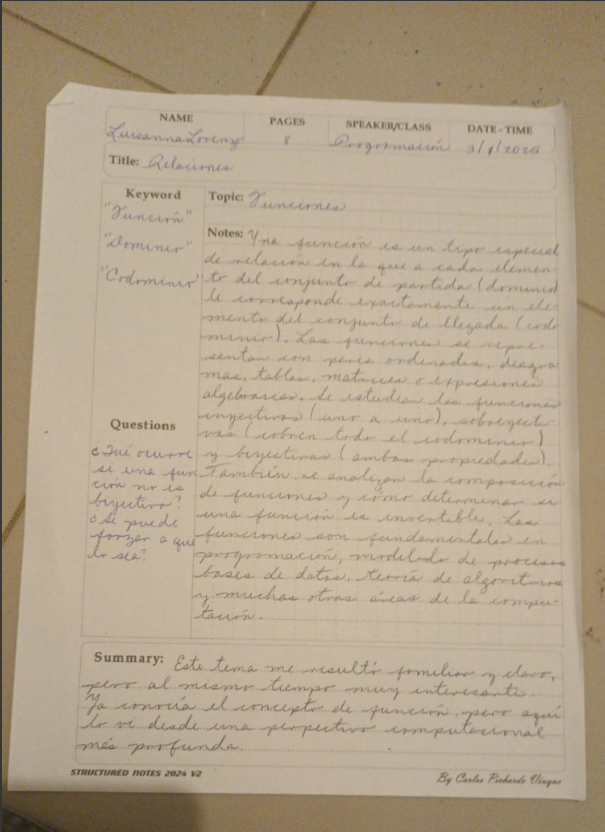 NAME PAGES SPEAKER/CLASS DATE - TIME
Luisanna Lorenzo 8 Programación 3/1/2025
Title: Relaciones
Keyword
"Función"
"Dominio"
"Codominio"
Questions
¿Qué ocurre
si una fun
ción no es
biyectiva?
¿Se puede
forzar a que
lo sea?
Topic: Funciones
Notes: Una función es un tipo especial
de relación en la que a cada elemen-
to del conjunto de partida (dominio)
le corresponde exactamente un ele-
mento del conjunto de llegada (codo
minio). Las funciones se repre-
sentan con pares ordenados, diagra
mas, tablas, matrices o expresiones
algebraicas. Se estudian las funciones
inyectivas (uno a uno), sobreyecti-
vas (cubren todo el codominio)
y biyectivas (ambas propiedades).
También se analizan la composición
de funciones y cómo determinar si
una función es invertible. Las
funciones son fundamentales en
programación, modelado de procesos
bases de datos, teoría de algoritmos
y muchas otras áreas de la compu-
tación.
Summary: Este tema me resultó familiar y claro,
pero al mismo tiempo muy interesante.
Ya conocía el concepto de función, pero aquí
lo vi desde una perpectiva computacional
más profunda.
STRUCTURED NOTES 2024 V2
By Carlos Pichardo Vinque